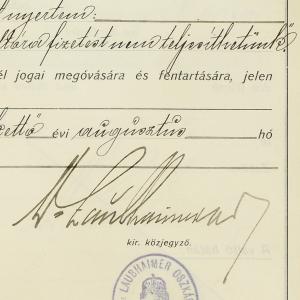 nyertem:
fizetést nem teljesíthetünk"
él jogai megóvására és fentartására, jelen
kettő évi augusztus hó
Dr Laubhaimer
kir. közjegyző.
LAUBHAIMER OSZKÁR